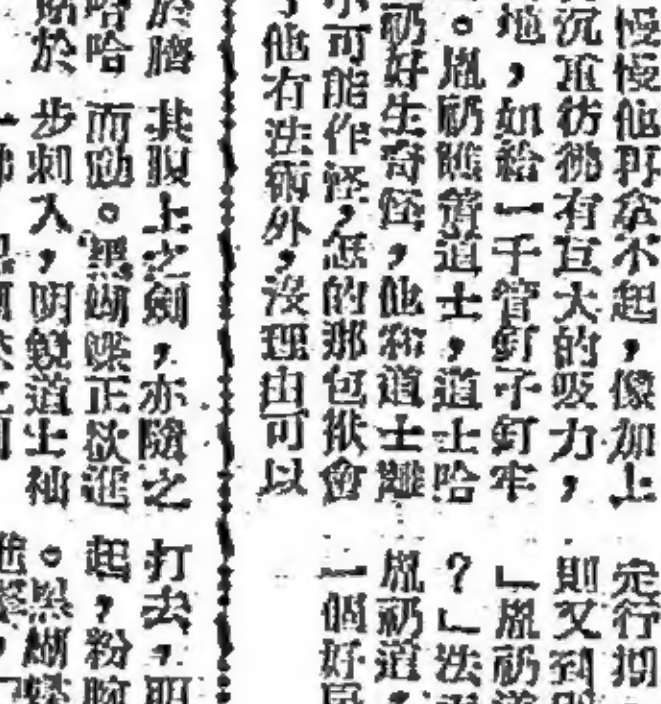 慢慢他再拿不起，像加上
沉重彷彿有巨大的吸力，
地，如給一千管釘子釘牢
。胤礽瞧着道士，道士哈
礽好生奇怪，他和道士離
不可能作怪，怎的那包袱會
他有法術外，沒理由可以
行期
則又到
」胤礽
？」法
胤礽道，
一個好
於臍
哈哈
於
其腹上之劍，亦隨之
而動。黑蝴蝶正欲進
步刺入，明鏡道士袖
打去，明
起，粉腕
。黑蝴蝶